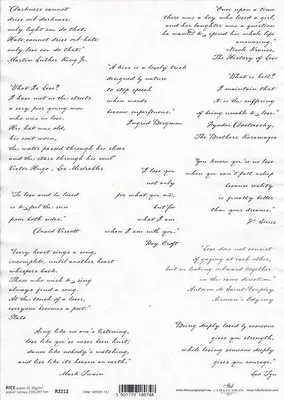 "Darkness cannot
drive out darkness:
only light can do that.
Hate cannot drive out hate:
only love can do that."
Martin Luther King Jr.
"Once upon a time
there was a boy who loved a girl,
and her laughter was a question
he wanted to spend his whole life
answering."
Nicole Krauss,
The History of Love
"A kiss is a lovely trick
designed by nature
to stop speech
when words
become superfluous."
Ingrid Bergman
"What Is Love?
I have met in the streets
a very poor young man
who was in love.
His hat was old,
his coat worn,
the water passed through his shoes
and the stars through his soul"
Victor Hugo, Les Misérables
"What is hell?
I maintain that
it is the suffering
of being unable to love."
Fyodor Dostoevsky,
The Brothers Karamazov
"You know you're in love
when you can't fall asleep
because reality
is finally better
than your dreams."
Dr. Seuss
"I love you
not only
for what you are,
but for
what I am
when I am with you."
Roy Croft
"To love and be loved
is to feel the sun
from both sides."
David Viscott
"Every heart sings a song,
incomplete, until another heart
whispers back.
Those who wish to sing
always find a song.
At the touch of a lover,
everyone becomes a poet."
Plato
"Love does not consist
of gazing at each other,
but in looking outward together
in the same direction."
Antoine de Saint-Exupéry
Airman's Odyssey
Sing like no one's listening,
love like you've never been hurt,
dance like nobody's watching,
and live like its heaven on earth."
Mark Twain
"Being deeply loved by someone
gives you strength,
while loving someone deeply
gives you courage."
Lao Tzu
RICE
R2212
COLLECTION
5 901779 180748